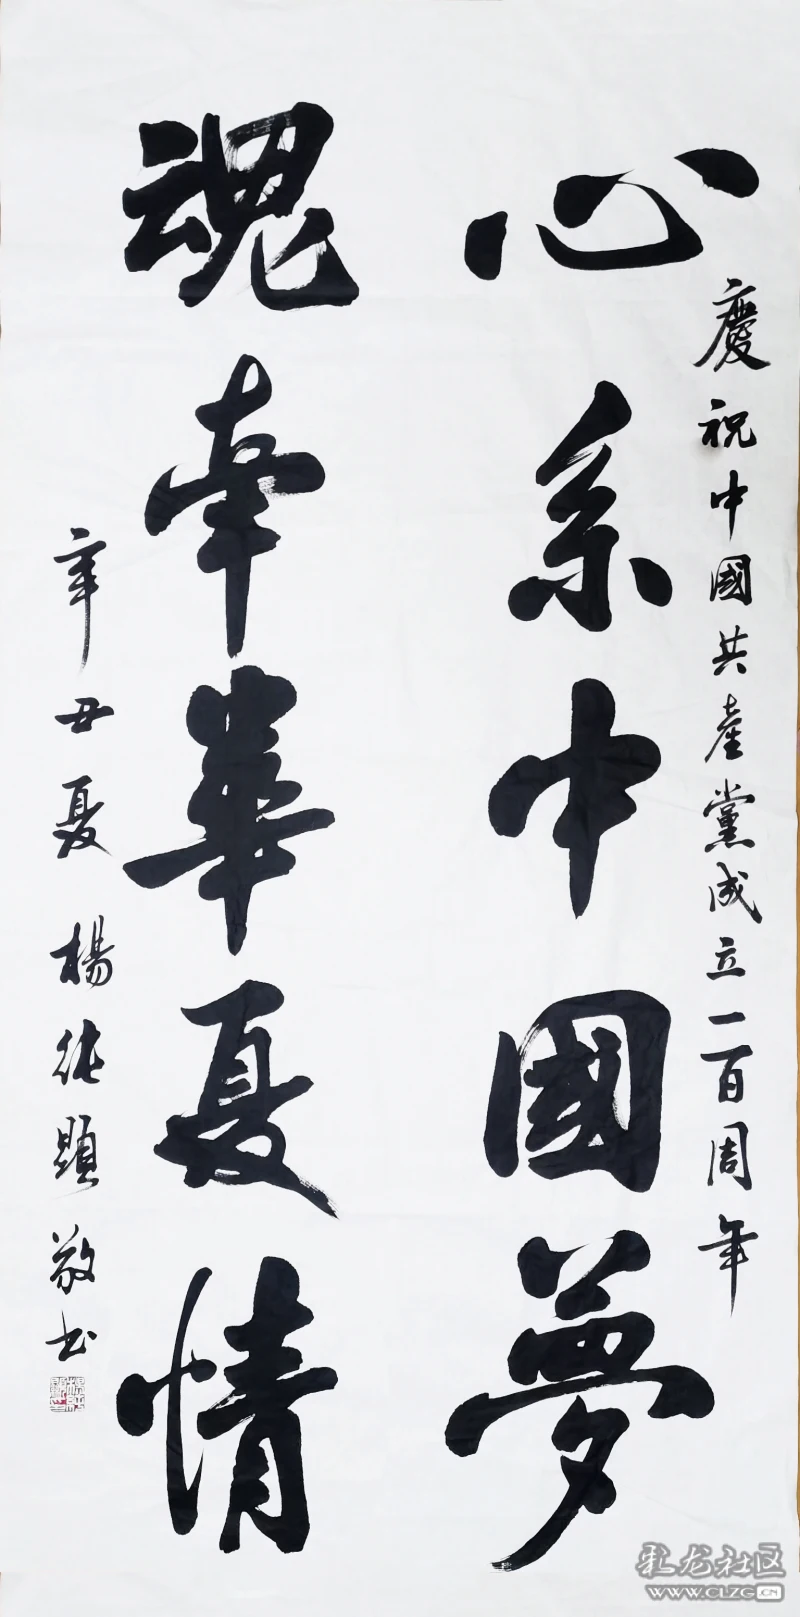 心系中國夢
慶祝中國共產黨成立一百周年
魂牽華夏情
辛丑夏 楊純顯敬书
化龙社区
WWW.CLZG.CN